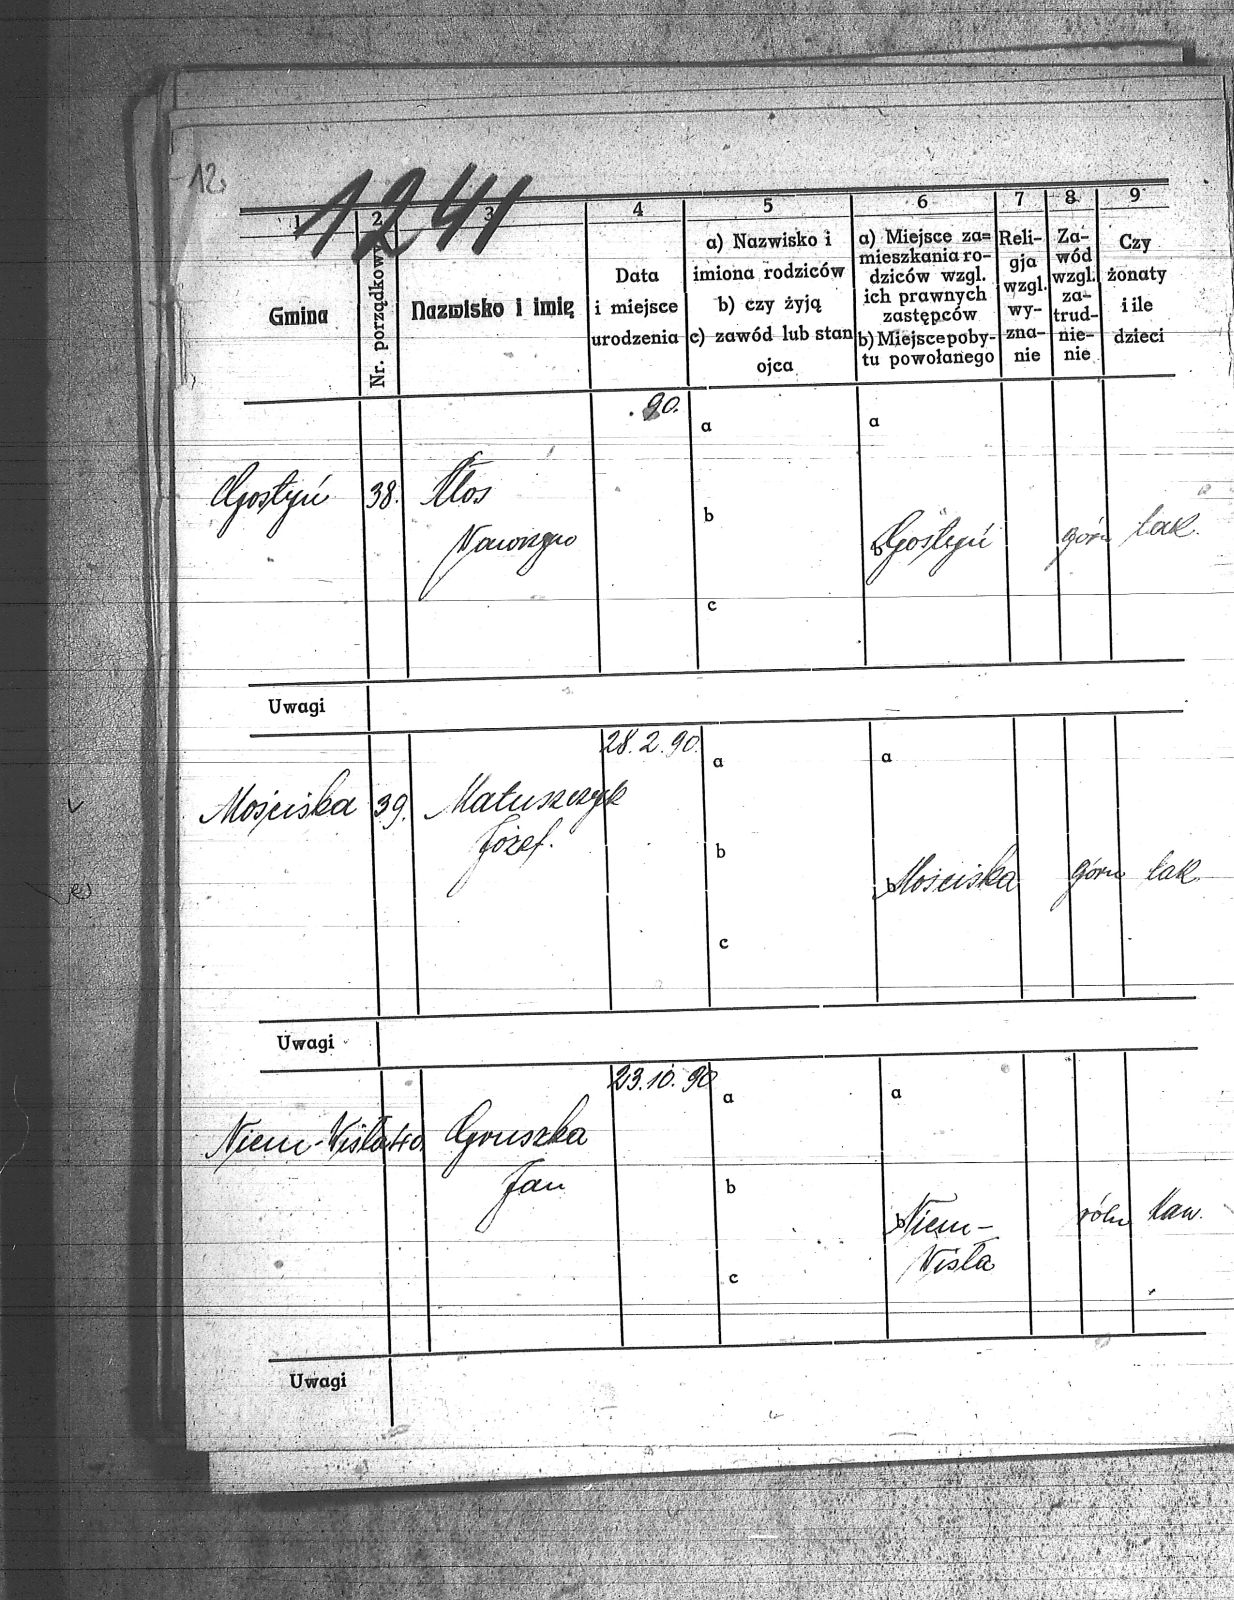 12.
1241
1 2 3 4 5 6 7 8 9
Gmina
Nr. porządkowy
Nazwisko i imię
Data
i miejsce
urodzenia
a) Nazwisko i
imiona rodziców
b) czy żyją
c) zawód lub stan
ojca
a) Miejsce za=
mieszkania ro-
dziców wzgl.
ich prawnych
zastępców
b) Miejsce poby-
tu powołanego
Reli-
gja
wzgl.
wy-
zna-
nie
Za-
wód
wzgl.
za-
trud-
nie-
nie
Czy
żonaty
i ile
dzieci
. 90.
a a
Gostyń 38. Kłos
Wawrzyn
b
b Gostyń górn tak.
c
Uwagi
28. 2. 90.
a a
Mościska 39. Matuszczyk
Józef.
b
b Mościska górn tak
c
Uwagi
23. 10. 90
a a
Niem-Wisła 40. Gruszka
Jan
b
b Niem- róln Kaw.
Wisła
c
Uwagi